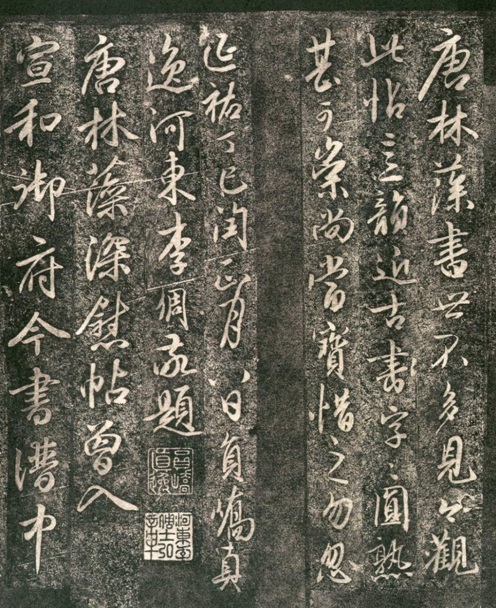 唐林藻書世不多見今觀
此帖意韻近古書字〻圓熟
甚可崇尚當寶惜之勿忽
延祐丁巳閏正月八日員嶠真
逸河東李倜敬題
員嶠真逸
唐林藻深慰帖曾入
宣和御府今書譜中